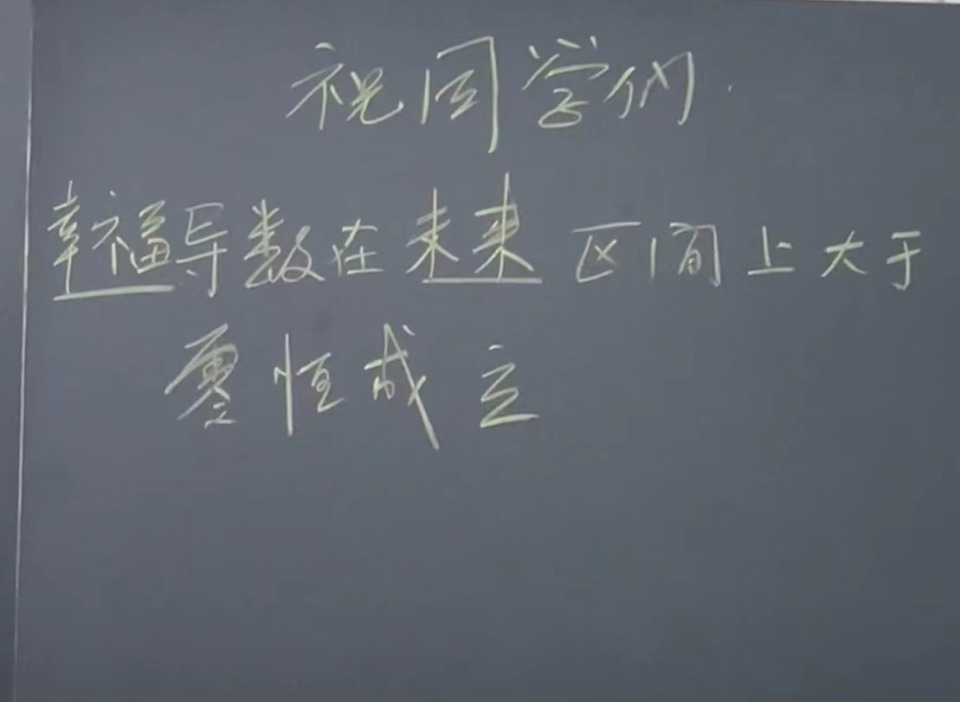 祝同学们
幸福导数在未来区间上大于
零恒成立